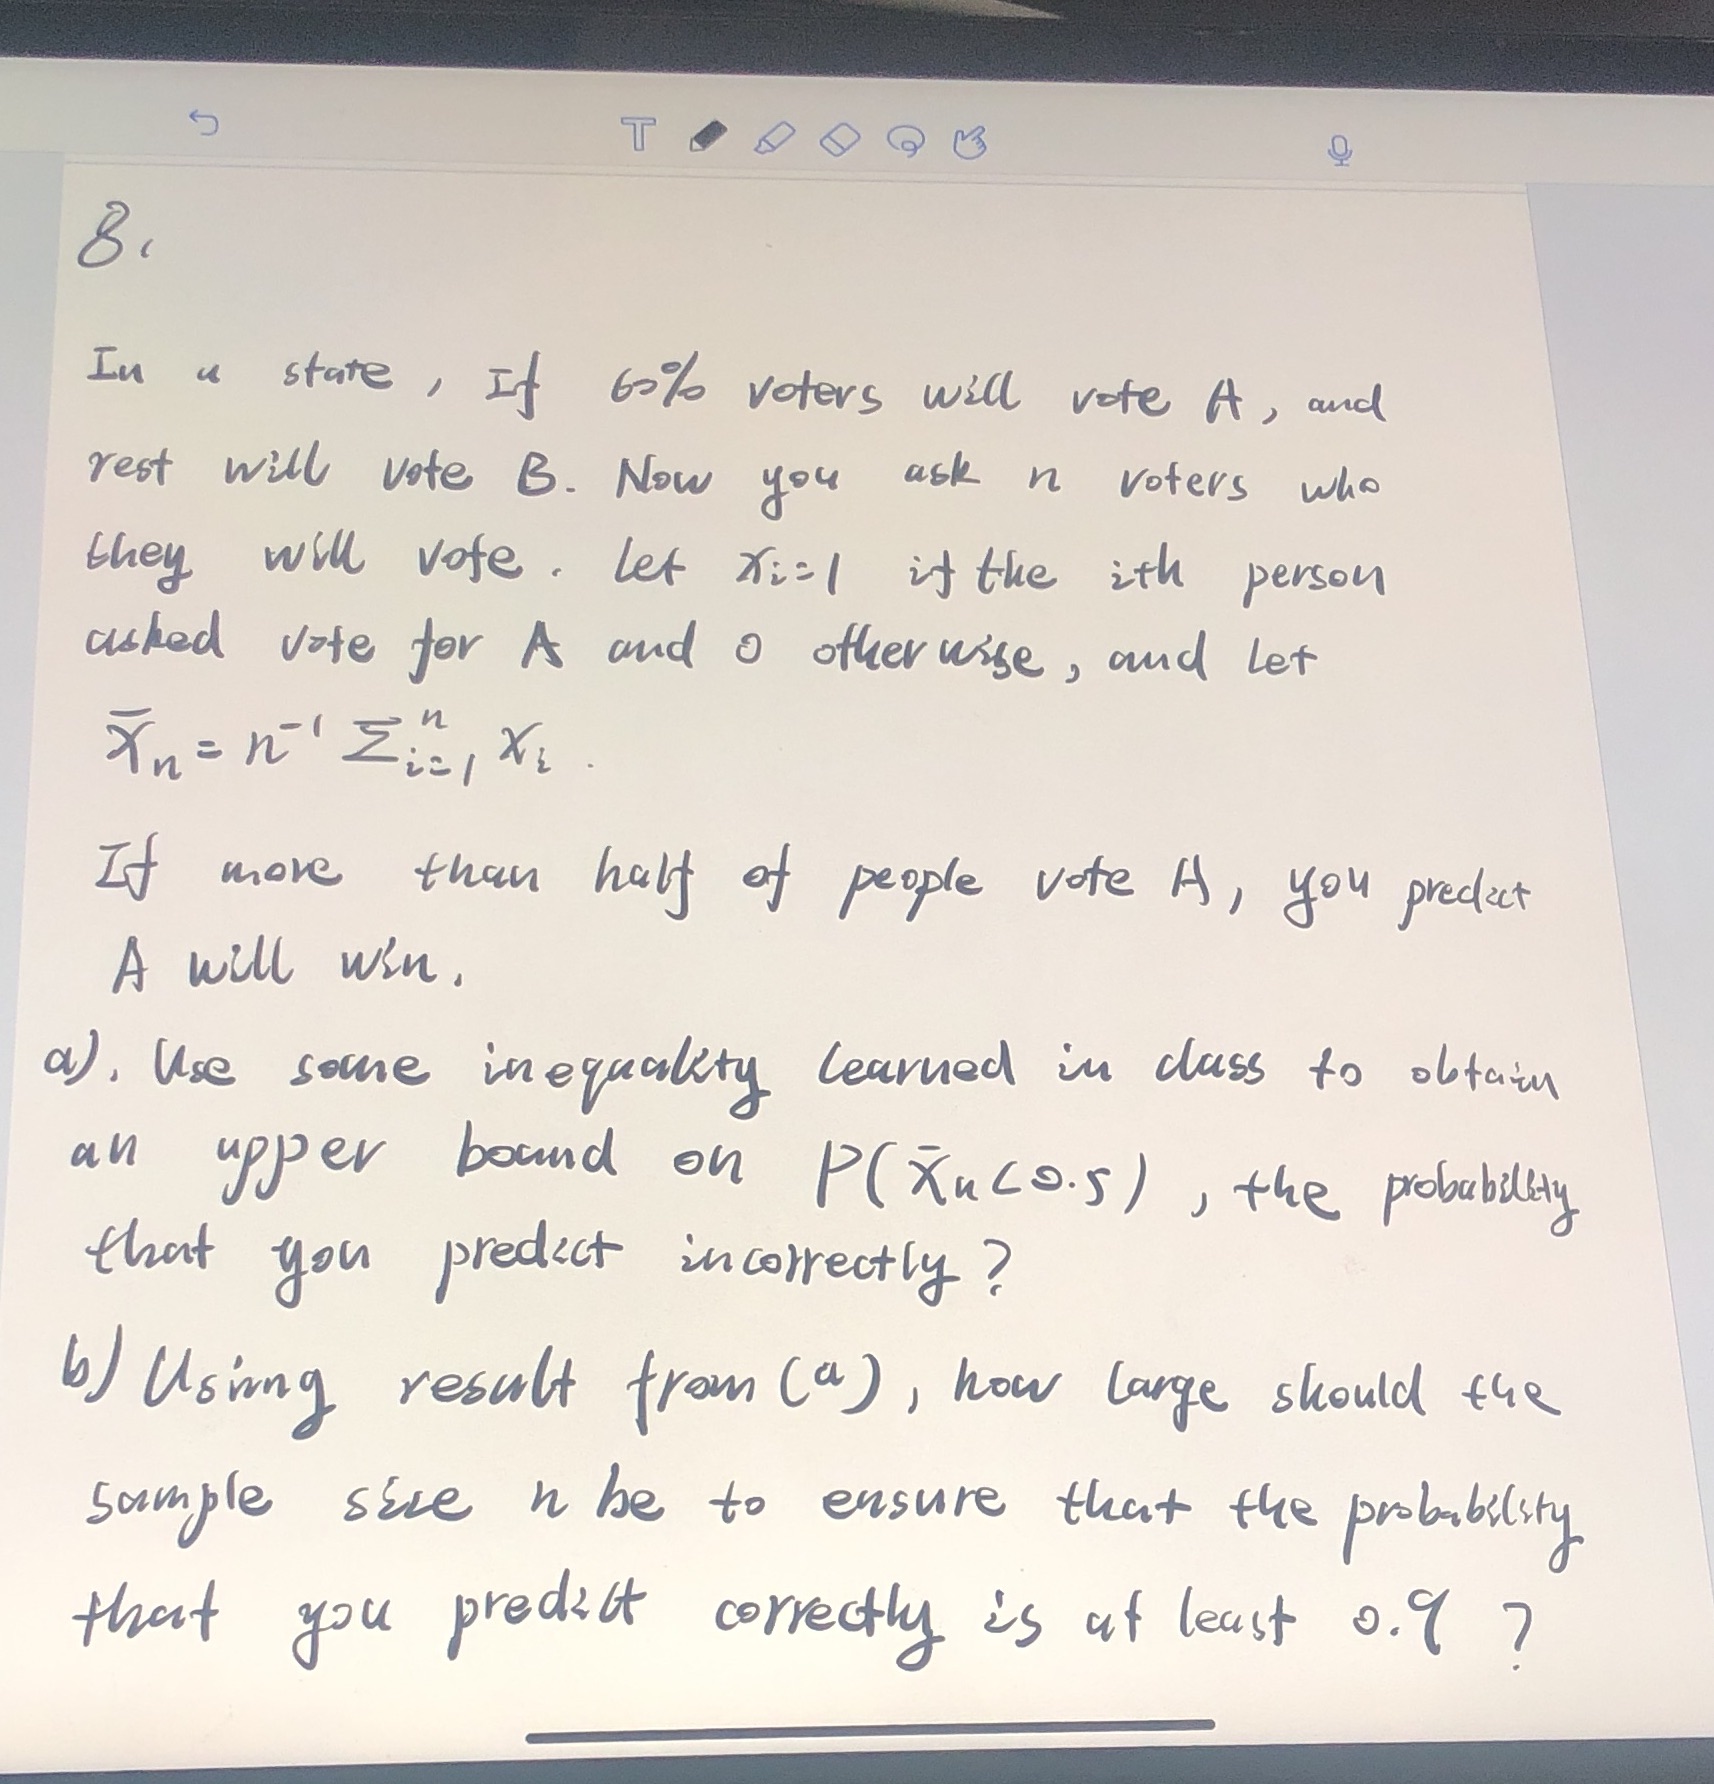 T
8.
In a state, If 60% voters will vote A, and
rest will vote B. Now you ask n voters who
they will vote. Let Xi=1 if the ith person
asked vote for A and 0 otherwise, and let
X̄n = n⁻¹ Σⁿᵢ₌₁ Xi.
If more than half of people vote A, you predict
A will win.
a). Use some inequality learned in class to obtain
an upper bound on P(X̄n<0.5), the probability
that you predict incorrectly?
b) Using result from (a), how large should the
sample size n be to ensure that the probability
that you predict correctly is at least 0.9?